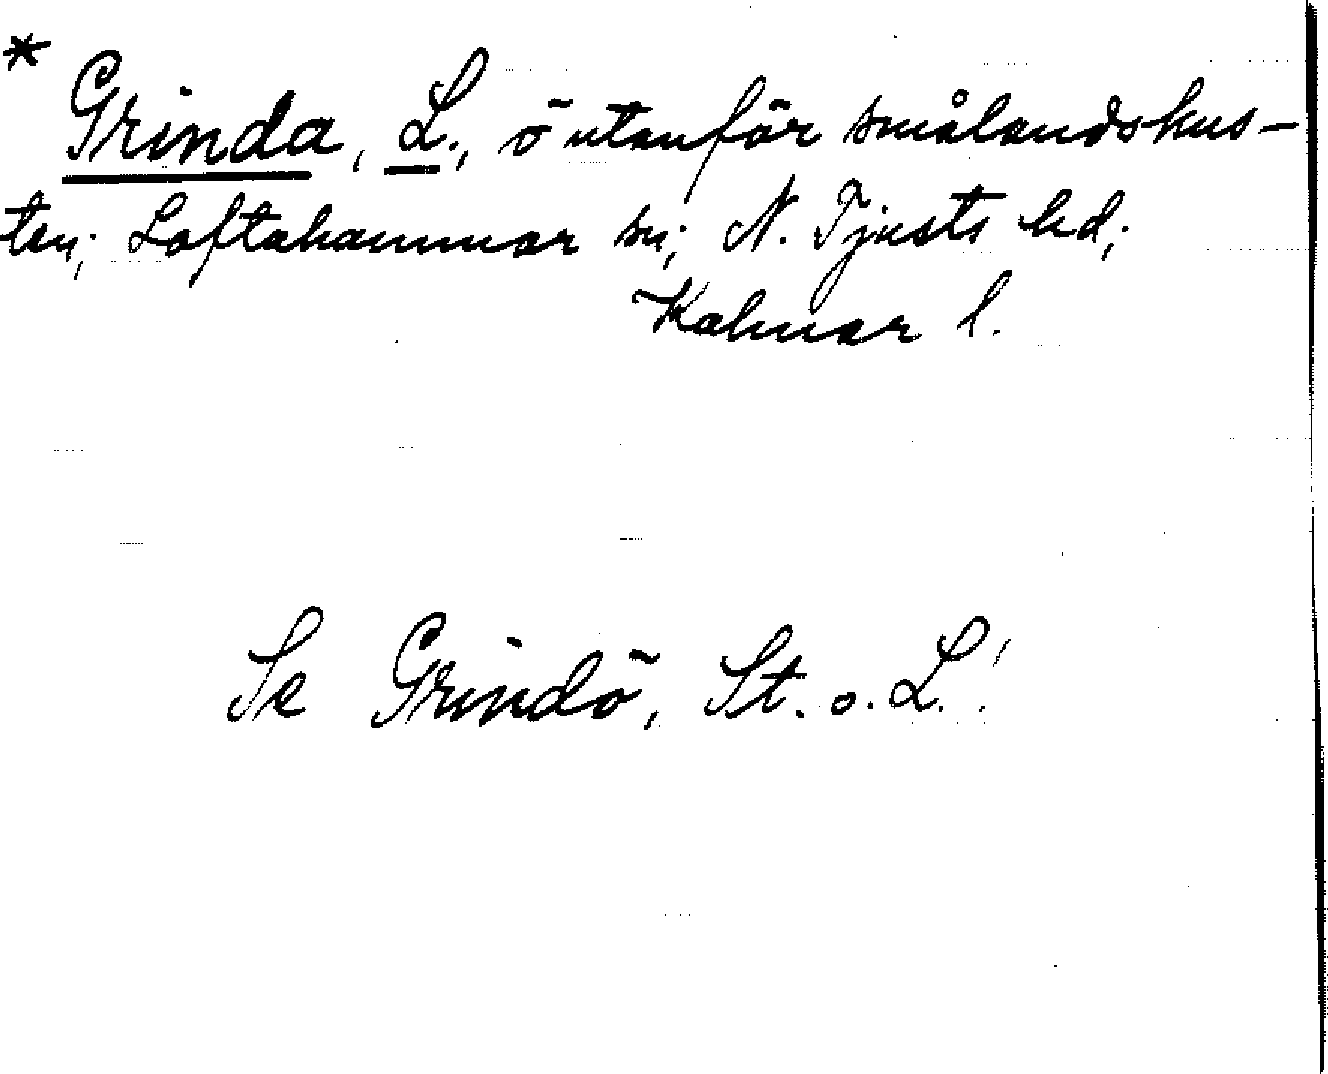 * Grinda, L., ö utanför smålandskus-
ten; Loftahammar sn; N. Tjusts hd;
Kalmar l.
Se Grindö, St. o. L.!